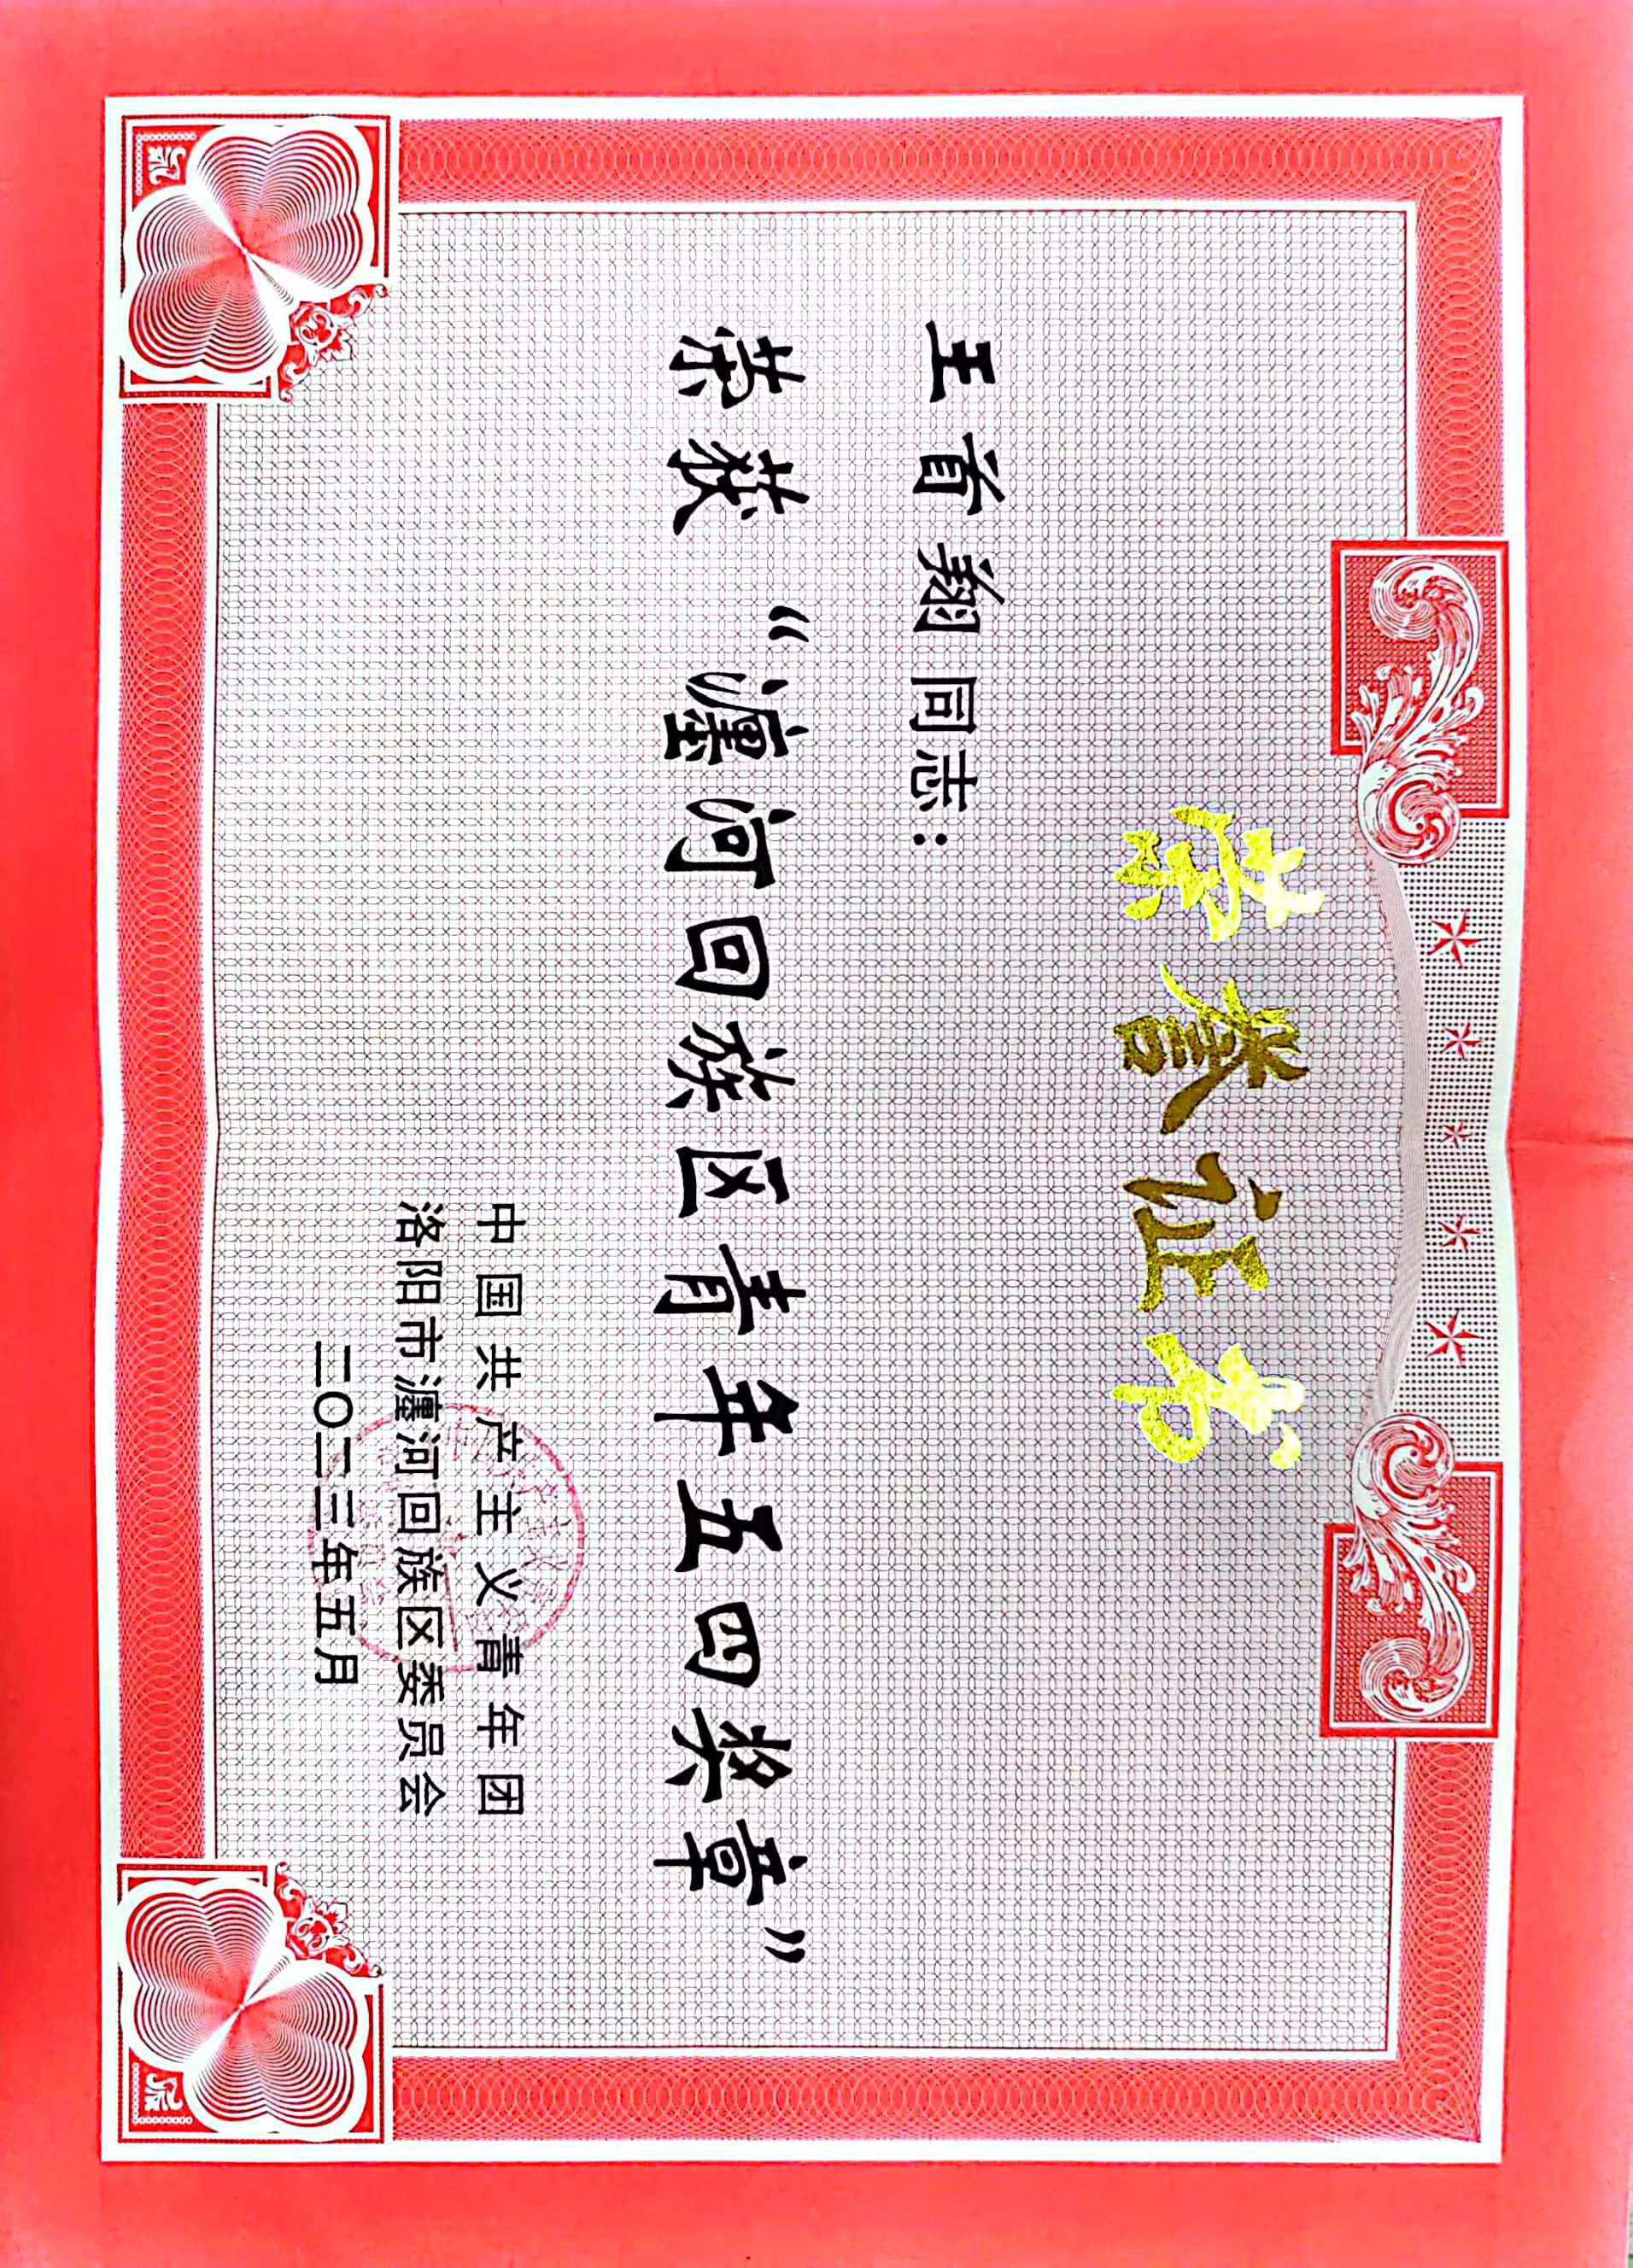 荣誉证书
王首翔同志：
荣获“瀍河回族区青年五四奖章”
中国共产主义青年团
洛阳市瀍河回族区委员会
二〇二三年五月